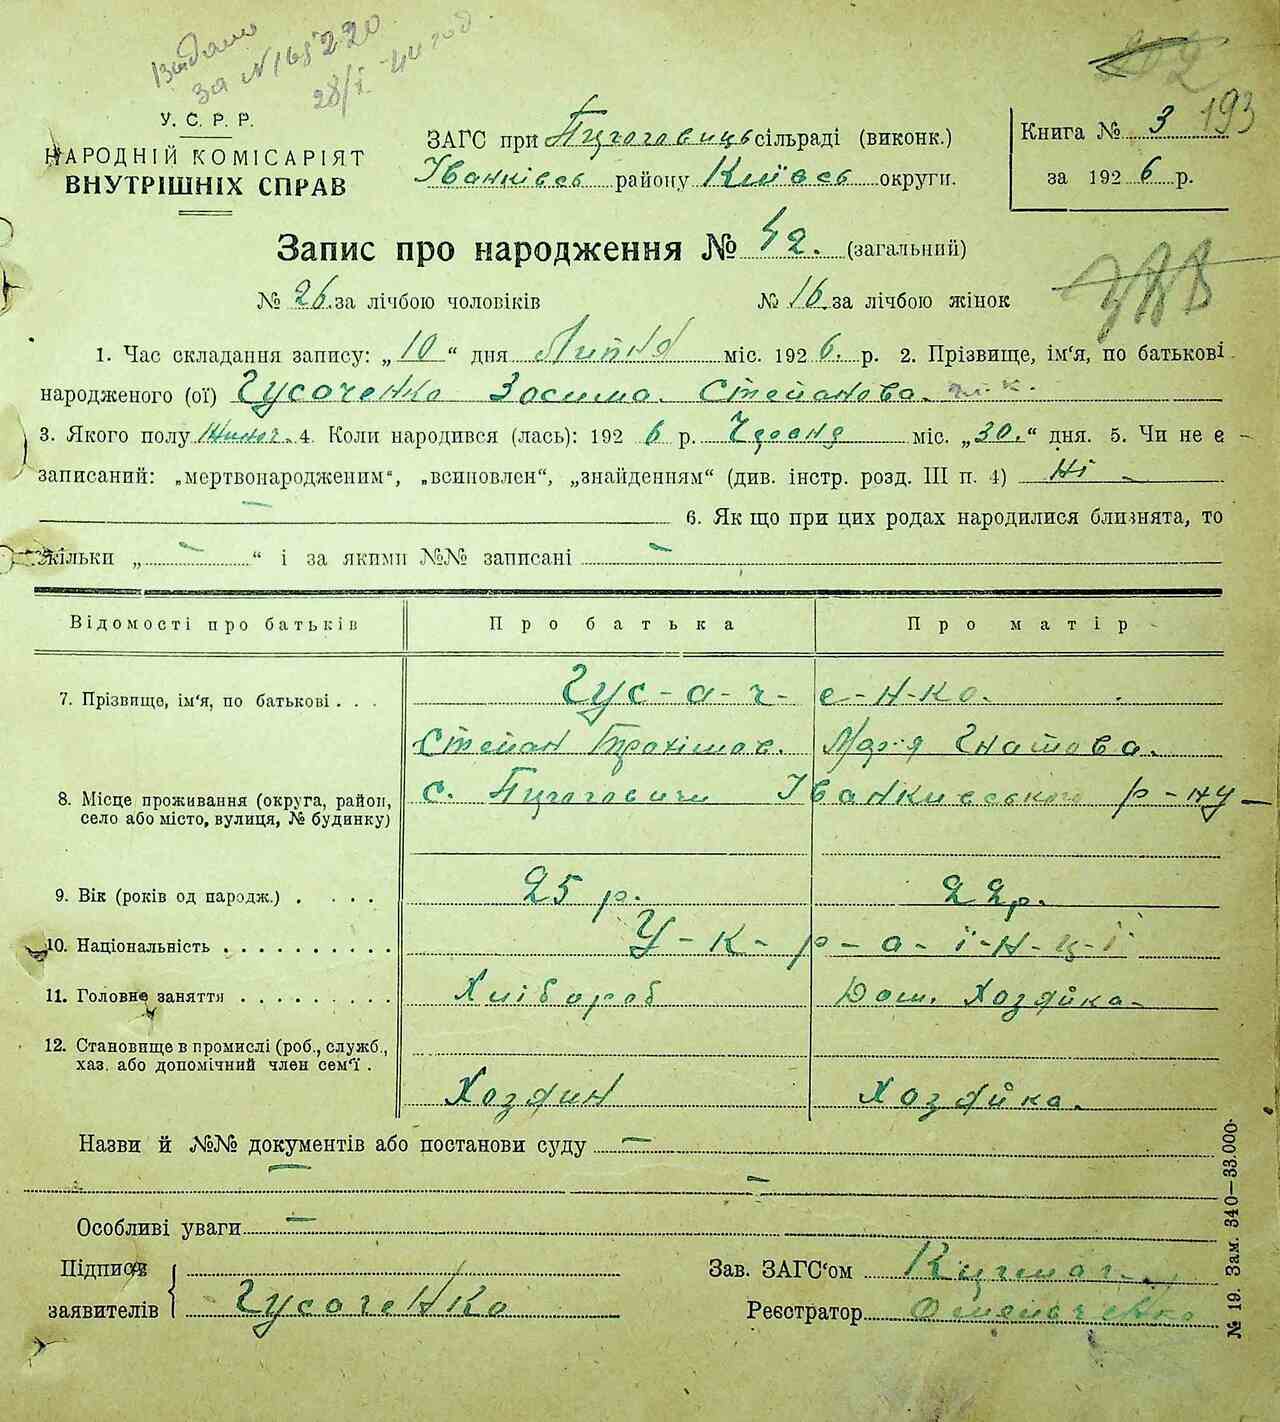 Видано
за № 165220
28/I - 44 год
У. С. Р. Р.
НАРОДНІЙ КОМІСАРІЯТ
ВНУТРІШНІХ СПРАВ
ЗАГС при сільраді (виконк.)
Іванківсь району Київсь округи.
193
Книга № 3
за 192 6 р.
Запис про народження № 42. (загальний)
№ 26. за лічбою чоловіків № 16. за лічбою жінок
1. Час складання запису: „ 10 “ дня Липня міс. 192 6. р. 2. Прізвище, ім‘я, по батькові
народженого (ої) Гусаченко Зосима Степанова.
3. Якого полу 4. Коли народився (лась): 192 6 р. Червня міс. „ 30. “ дня. 5. Чи не є
записаний: „мертвонародженим“, „всиновлен“, „знайденням“ (див. інстр. розд. III п. 4) Ні -
6. Як що при цих родах народилися близнята, то
скільки „ - “ і за якими №№ записані -
Відомості про батьків Про батька Про матір
7. Прізвище, ім‘я, по батькові . . . Гус-а-ч-е-н-ко.
Степан Трохимов. Марія Гнатова.
8. Місце проживання (округа, район,
село або місто, вулиця, № будинку)
с. Іванкивського р-ну
9. Вік (років од народж.) . . . . 25 р. 22 р.
10. Національність . . . . . . . . . . У-к-р-а-ї-н-ц-і
11. Головне заняття . . . . . . . . . Хлібороб Дом. Хозяйка
12. Становище в промислі (роб., служб.,
хаз. або допомічний член сем‘ї .
Хозяин Хозяйка.
Назви й №№ документів або постанови суду -
Особливі уваги -
Підписи
заявителів Гусаченко
Зав. ЗАГС‘ом
Реєстратор
№ 19. Зам. 340—33.000.